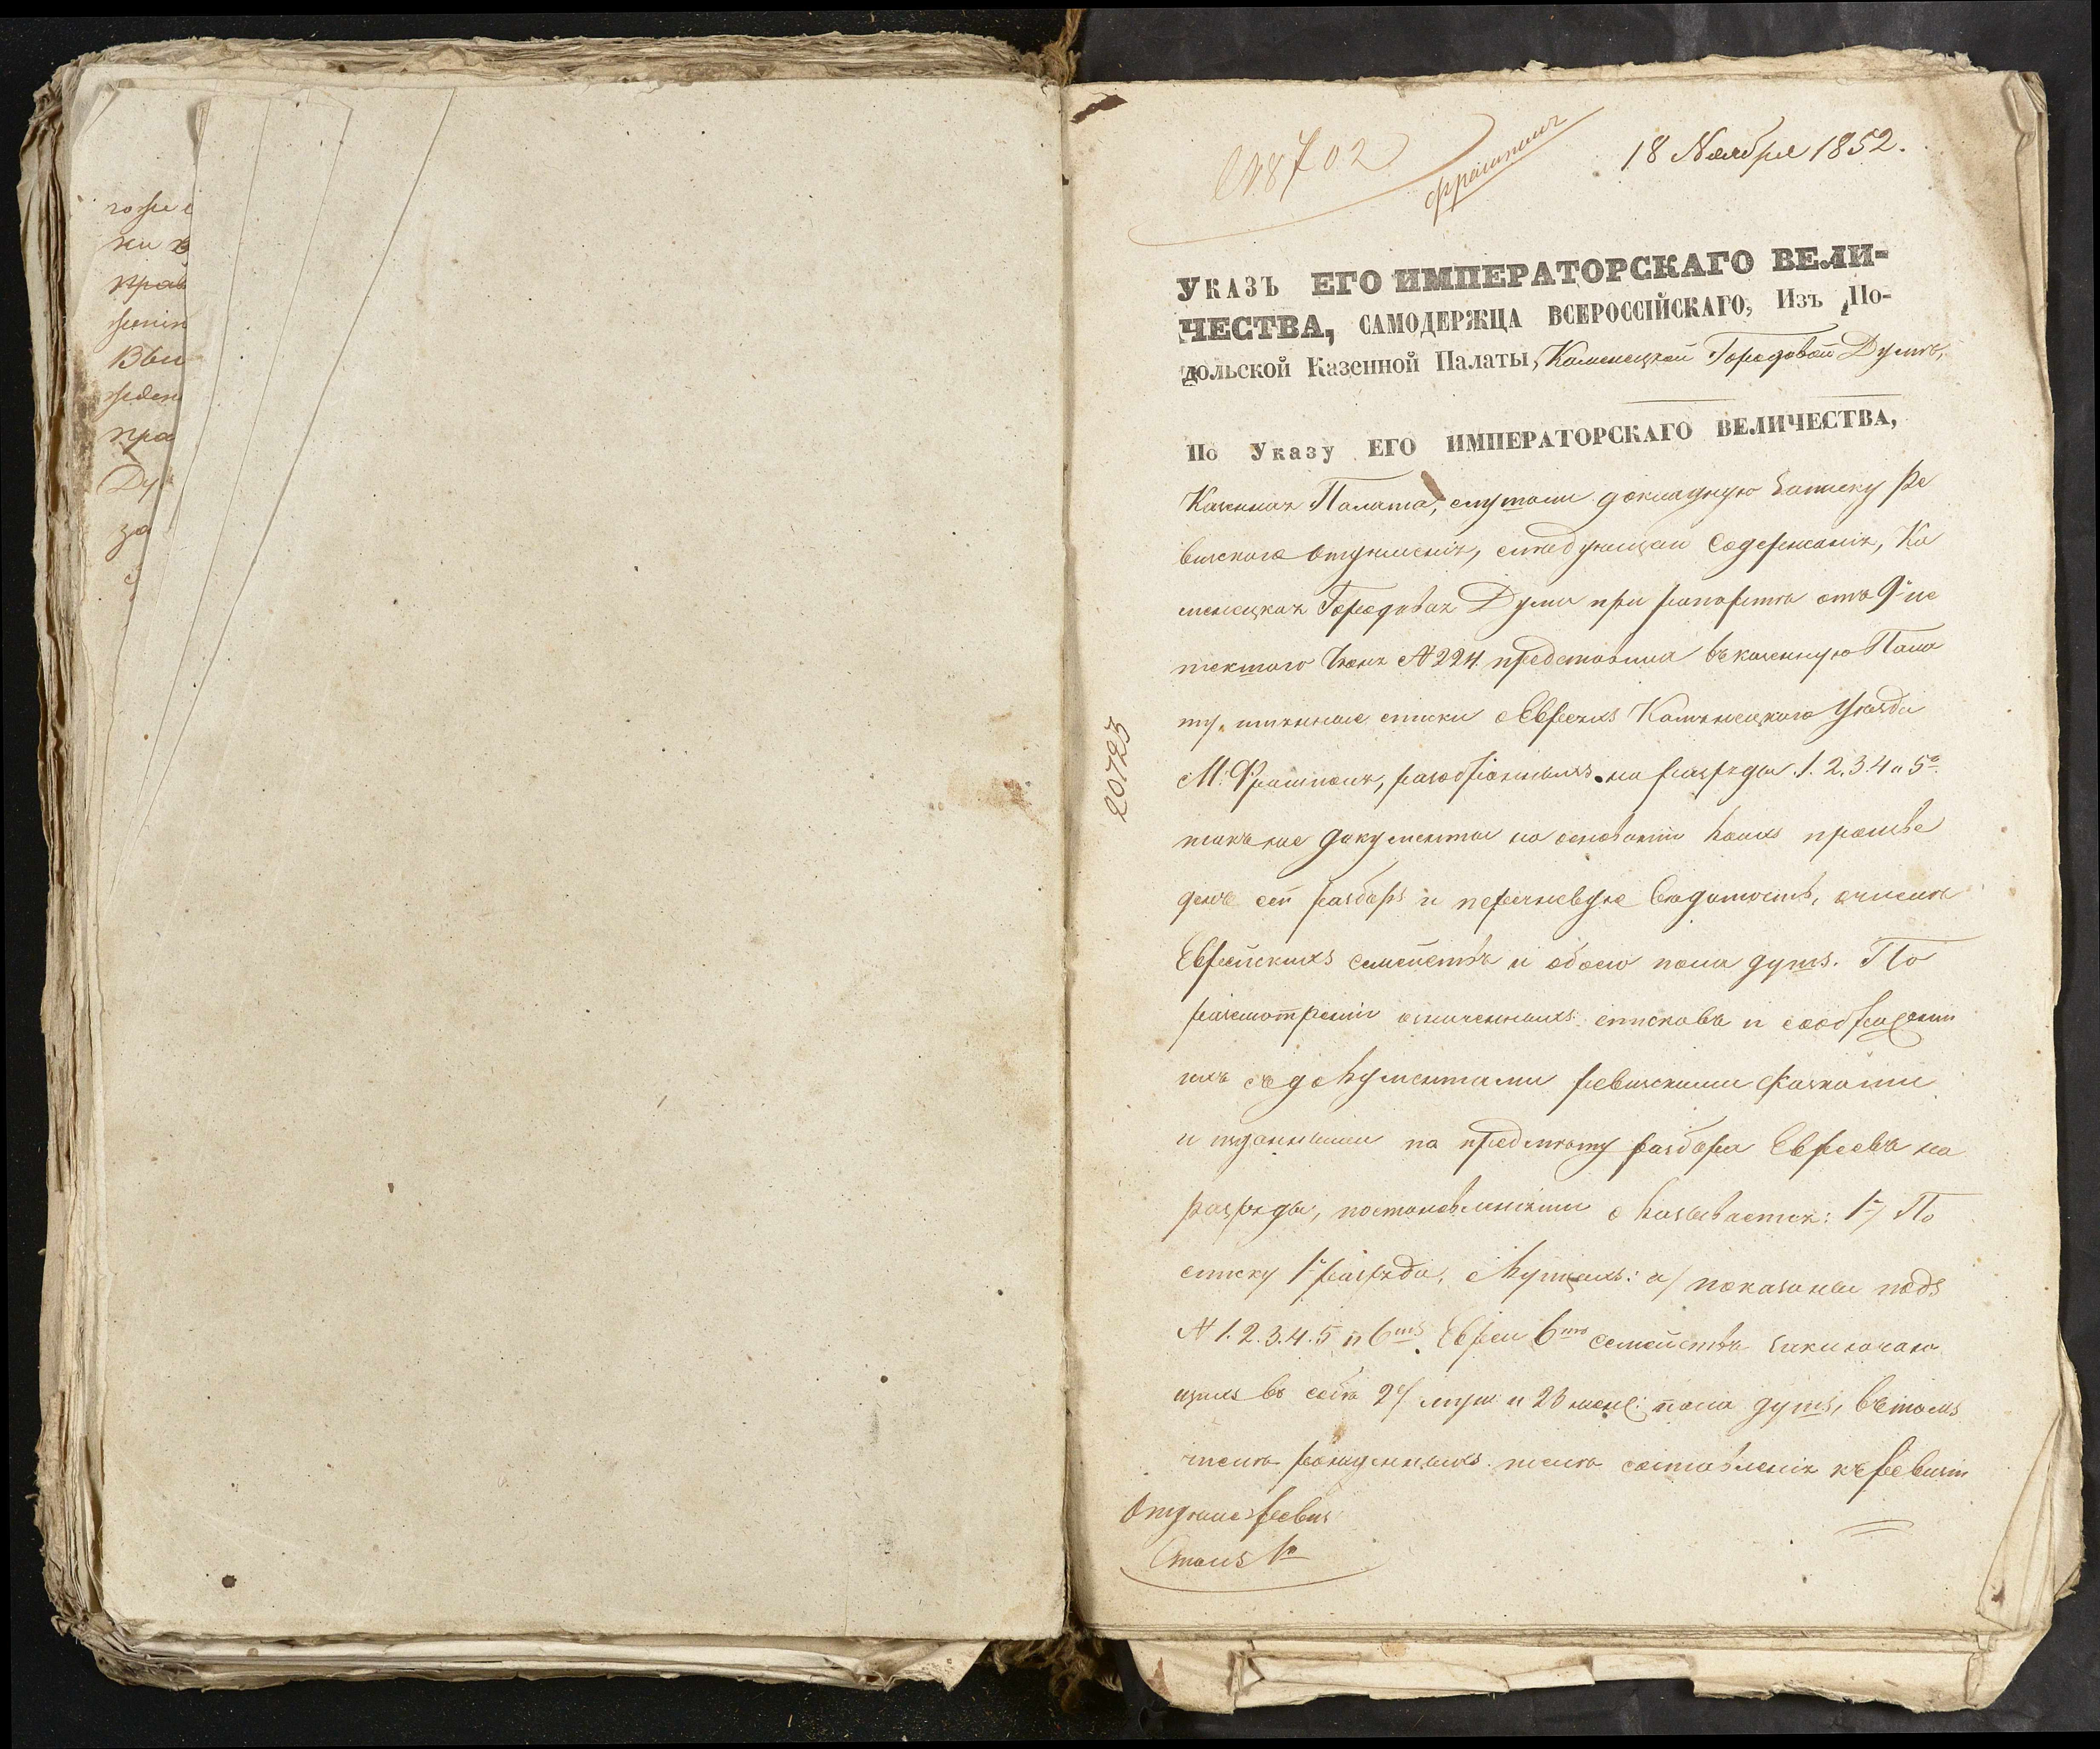 гоже с
ни в
прав
женін
Выи
жден
пра
Ду
за
с
№8702
Фрампаль
18 Ноября 1852.
Указъ ЕГО ИМПЕРАТОРСКАГО ВЕЛИ-
ЧЕСТВА, САМОДЕРЖЦА ВСЕРОССІЙСКАГО, Изъ По-
дольской Казенной Палаты, Каменецкой Городовой Думѣ,
По Указу ЕГО ИМПЕРАТОРСКАГО ВЕЛИЧЕСТВА,
Казенная Палата, слушали докладную записку Ре
визскаго Отдѣленія, слѣдующаго содержанія, Ка
менецкая Городовая Дума при рапортѣ отъ 9го ис
текшаго Іюня №224 представила въ казенную Пала
ту, имянные списки о Евреяхъ Каменецкаго Уѣзда
М. Фрампаль, разобранныхъ на разряды 1. 2. 3. 4 и 5й
также документы на основаніи коихъ произве
денъ сей разборъ и перечневую вѣдомость, о числѣ
Еврейскихъ семействъ и обоего пола душъ. По
разсмотреніи означенныхъ списковъ и соображеніи
ихъ съ документами ревизскими сказками
и изданными по предмету разбора Евреевъ на
разряды, постановленіями оказывается: 1е/ По
списку 1го разряда, о Купцахъ: а/ показаны подъ
№ 1. 2. 3. 4. 5 и 6мъ Евреи 6ти семействъ заключаю
щихъ въ себѣ 27 муж: и 23 женс: пола душъ, въ томъ
числѣ рожденныхъ послѣ составленія 8й ревизіи
Отдѣленіе ревиз:
Столъ 1й
20723